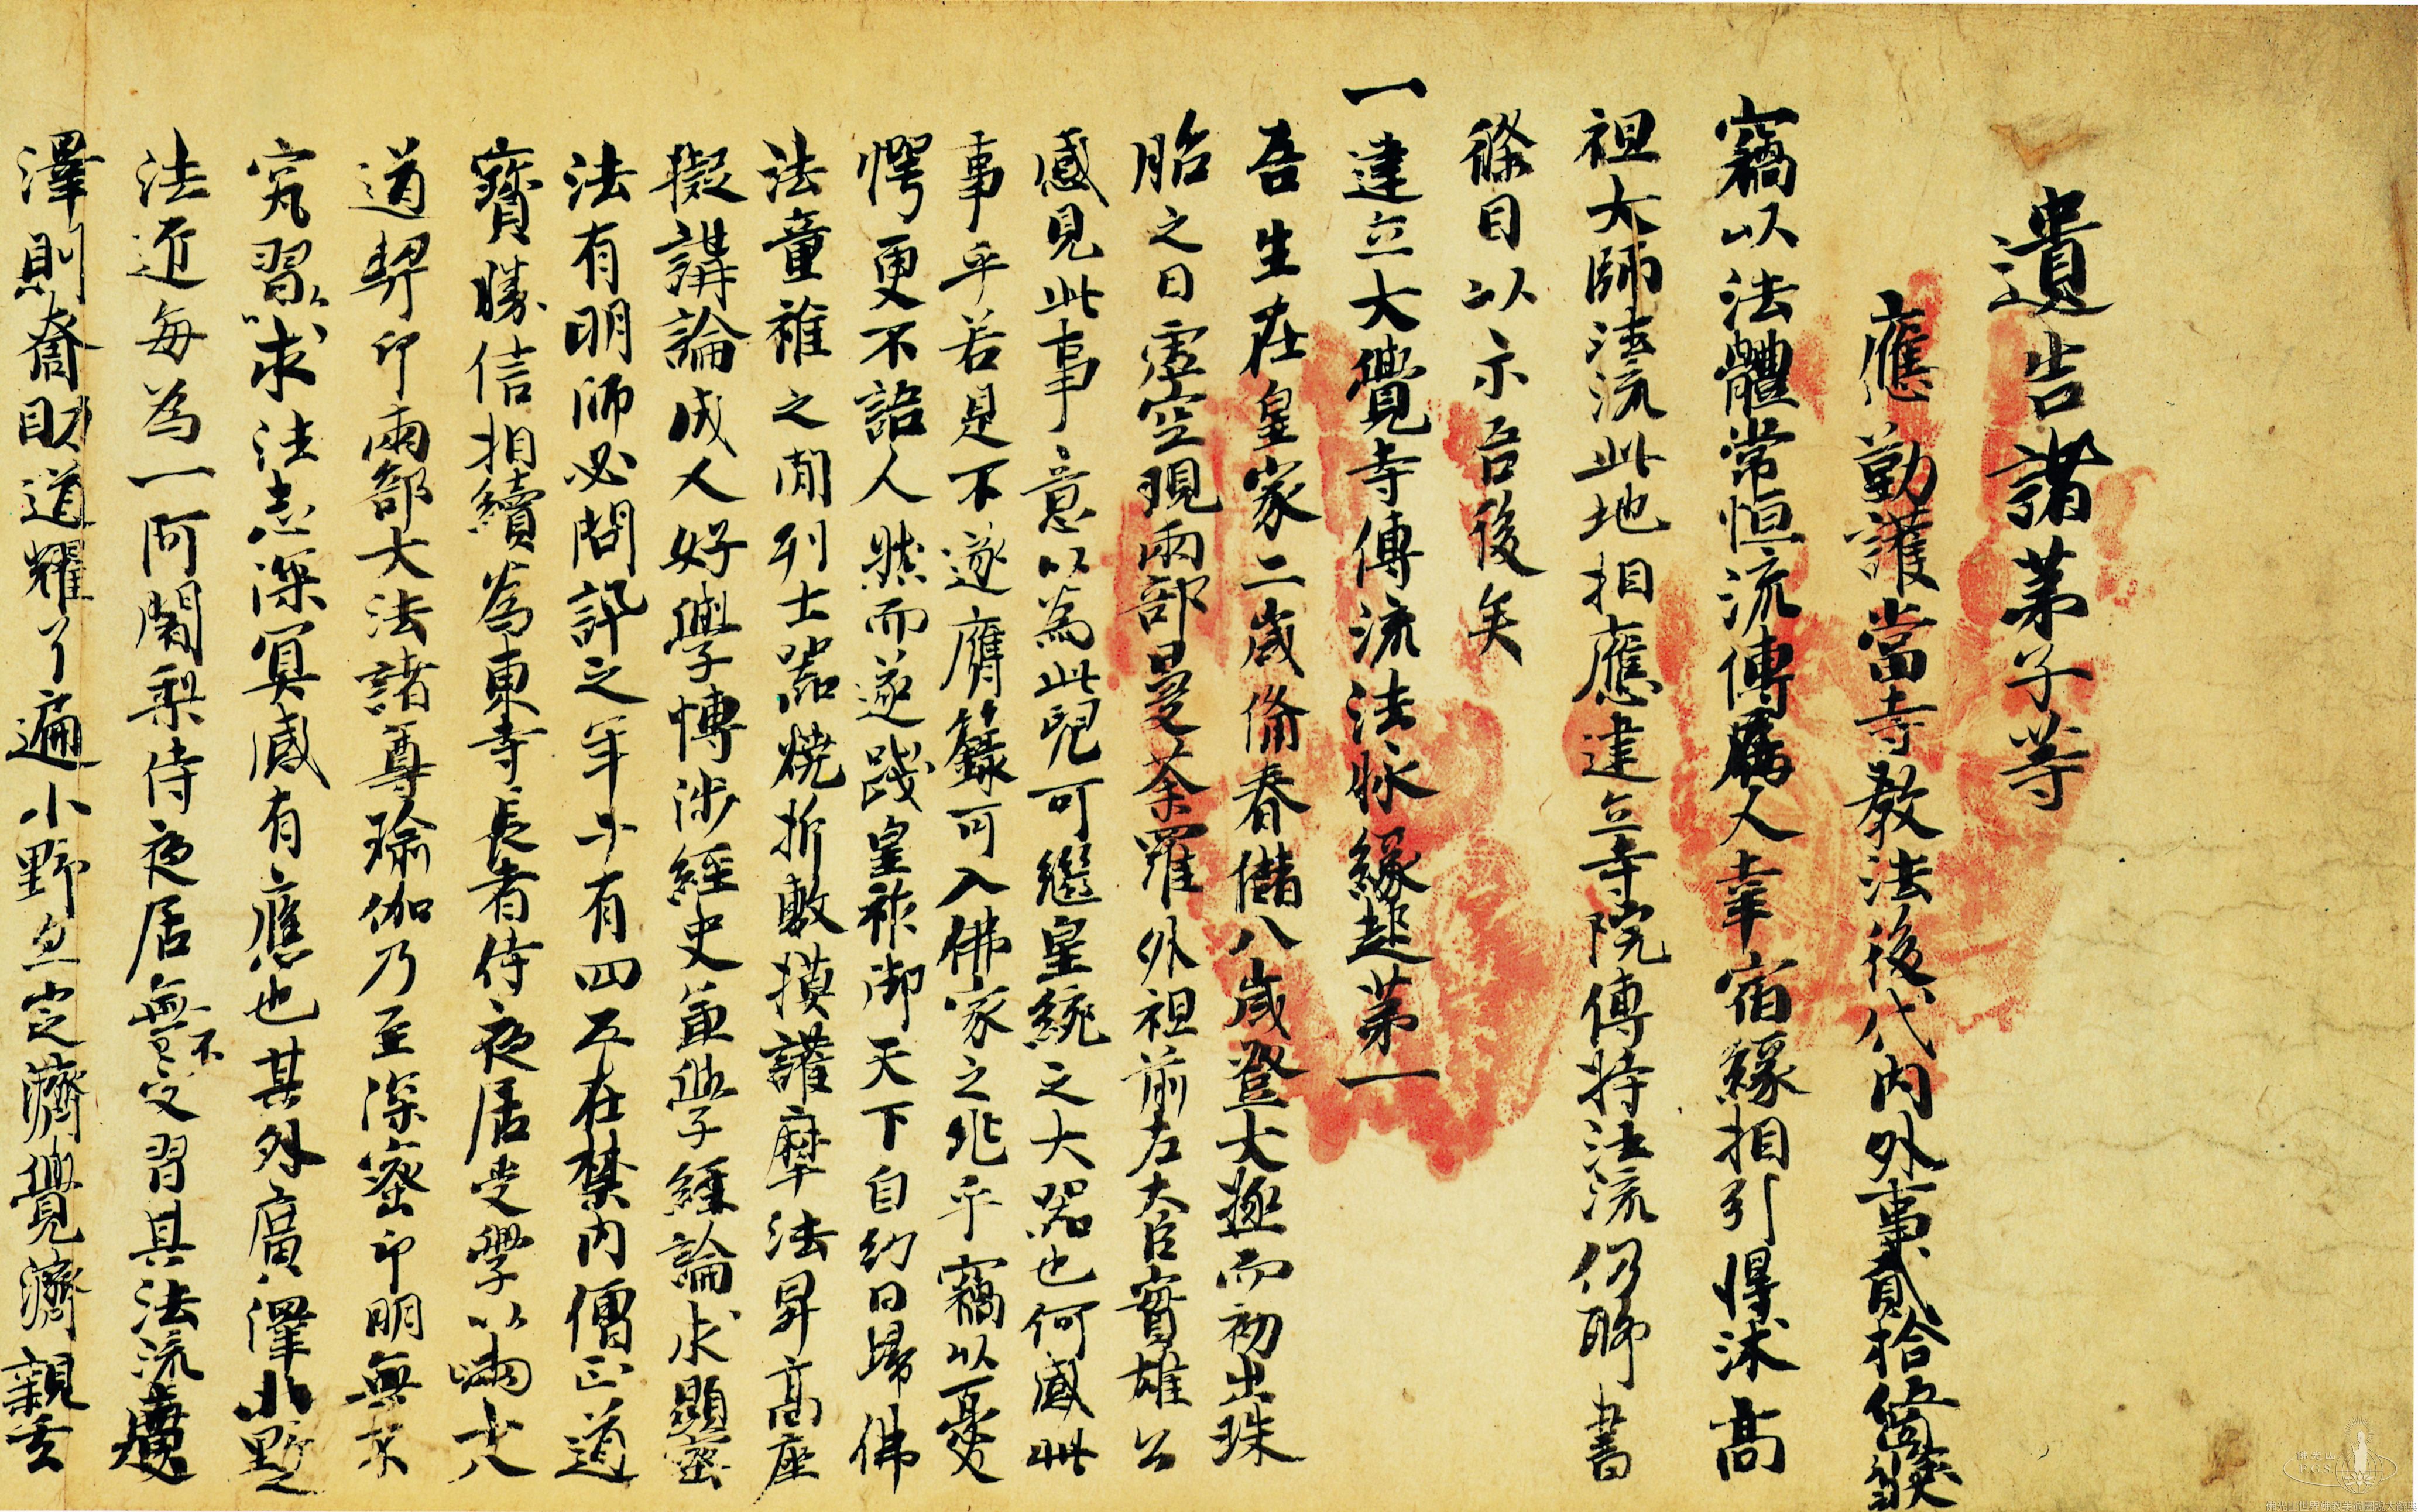 遺告諸弟子等
應勤護當寺教法後代內外事貳拾箇條
竊以法體常恒流傳属人幸宿緣相引得沐高
祖大師法流此地相應建立寺院傳持法流仍聊書
條目以示吾後矣
一建立大覺寺傳流法脉緣起第一
吾生在皇家二歲備春儲八歲登大極而初出珠
胎之日虛空現兩部曼荼羅外祖前左大臣實雄公
感見此事意以為此兒可繼皇統之大器也何感此
事乎若是不遂膺籙可入佛家之兆乎竊以憂
愕更不語人然而遂踐皇祚御天下自約日歸佛
法童稚之間列士器燒折敷摸護摩法昇高座
擬講論成人好學博涉經史兼學經論求顯密
法有明師必問訊之年廿有四五在禁內僧正道
寶勝信相續為東寺長者侍夜居受學以嘯十八
道契印兩部大法諸尊瑜伽乃至深密印明無不
究習求法志深冥感有應也其外廣澤小野之
法近每為一阿闍梨侍夜居無不受習具法流
澤則喬助道耀了遍小野亦定濟覺濟親玄